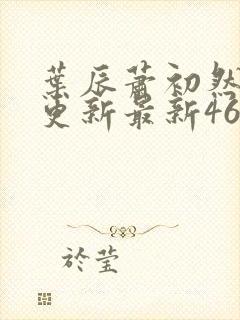 葉辰蕭初然
更新最新46
於莹